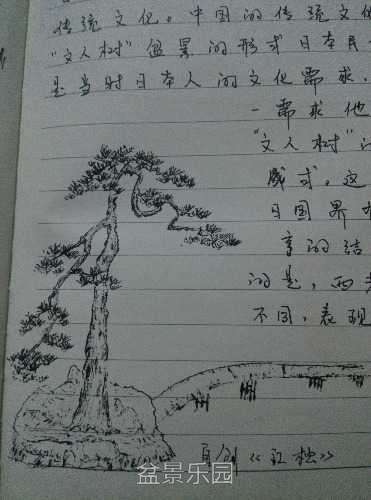 传统文化。中国的传统文
"文人树"盆景的形式日本民
是当时日本人的文化需求.
一需求他
"文人树"
威式,这
日国界
享的结
的是,西
不同,表现
自创《孤独》
盆景乐园